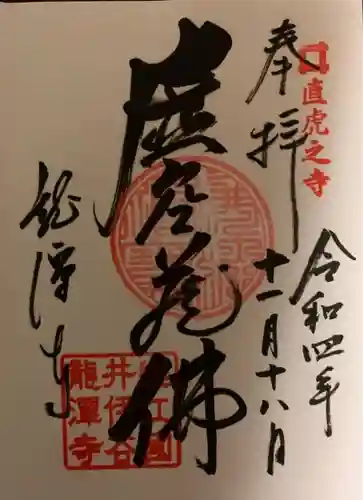 奉拝
直虎之寺
令和四年
十一月十八月
虚空蔵佛
龍潭寺
井伊谷
龍潭寺